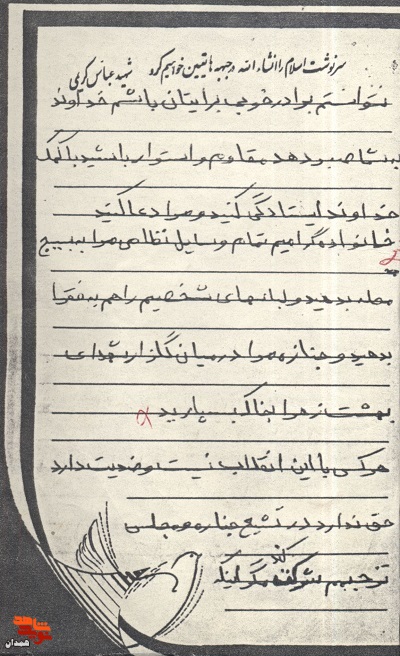 سرنوشت اسلام را انشاء الله در جبهه ها تعیین خواهیم کرد شهید عباس کریمی
نتوانستم برادر خوبی برایتان باشم خداوند
به شما صبر دهد مقاوم و استوار باشید با کمک
خداوند استادگی کنید و مرا دعا کنید
خانواده گرامیم تمام وسایل نظامی مرا به بسیج
محله بدهید و لباسهای شخصیم را هم به فقرا
بدهید و جنازه مرا در میان گلزار شهدای
بهشت زهرا بخاک بسپارید
هر کس با این انقلاب نیست و ضدیت دارد
حق ندارد در تشیع جنازه و مجلس
ترحیم شرکت کند مگر اینکه
نوید شاهد
همدان